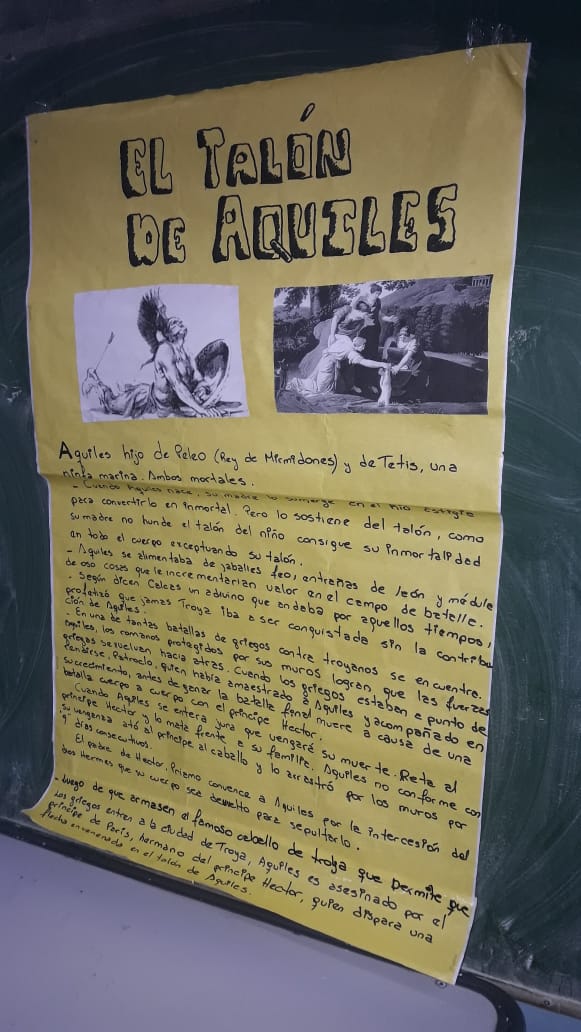 EL TALÓN
DE AQUILES
Aquiles hijo de Peleo (Rey de Mirmidones) y de Tetis, una
ninfa marina. Ambos mortales.
- Cuando Aquiles nace, su madre lo sumerge en el Río estigie
para convertirlo en inmortal. Pero lo sostiene del talón, como
su madre no hunde el talón del niño consigue su inmortalidad
en todo el cuerpo exceptuando su talón.
- Aquiles se alimentaba de jabalíes feo, entrañas de león y médule
de oso cosas que le incrementarían valor en el campo de batelle.
- Según dicen Calcas un adivino que andaba por aquellos tiempos,
profetizó que jamas Troya iba a ser conquistada sin la contribu
ción de Aquiles.
- En una de tantas batallas de griegos contra troyanos se encuentre
Aquiles, los romanos protegidos por sus muros logran que las fuerzas
griegas se vuelvan hacia atras. Cuando los griegos estaben a punto de
rendirse, Patroclo, quien había amaestrado a Aquiles y acompañado en
su crecimiento, antes de ganar la batalla final muere a causa de una
batalla cuerpo a cuerpo con el príncipe Hector.
Cuando Aquiles se entera jura que vengará su muerte. Reta al
príncipe Hector y lo mata frente a su familie. Aquiles no conforme con
su venganza ató al príncipe al caballo y lo arrastró por los muros por
9 días consecutivos.
El padre de Hector, Príamo convence a Aquiles por la intercesión del
dios Hermes que su cuerpo sea devuelto para sepultarlo.
- Luego de que armasen el famoso caballo de troya que permite que
los griegos entren a la ciudad de Troya, Aquiles es asesinado por el
príncipe de París, hermano del príncipe Hector, quien dispara una
flecha envenenada en el talón de Aquiles.